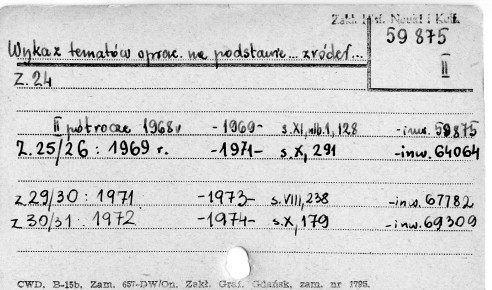 Zakł. Inf. Nauki i Kult.
59 875
II
Wykaz tematów oprac. na podstawie... źródeł...
Z. 24
II półrocze 1968 r -1969- s. XI, nlb. 1, 128 -inw. 59875
Z. 25/26 : 1969 r. -1971- s. X, 291 -inw. 64064
z 29/30 : 1971 -1973- s. VIII, 238 -inw. 67782
z 30/31 : 1972 -1974- s. X, 179 -inw. 69309
CWD. B-15b. Zam. 657-DW/On. Zakł. Graf. Gdańsk, zam. nr 1795.